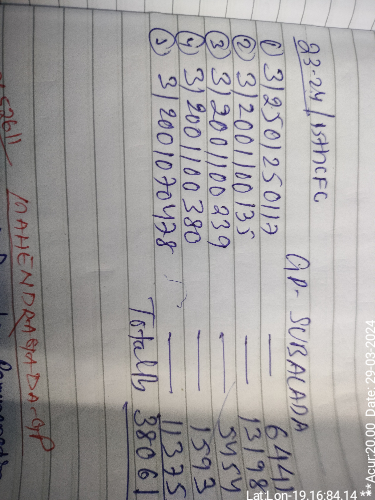 23-24/15thCFC
GP- SUBALADA
① 312501250117 — 6441
② 3120011100135 — 13198
③ 3120011100239 — 5454
④ 3120011100380 — 1593
⑤ 312001070478 — 11375
Totally 38061
MAHENDRAGADA-GP
Lat Lon-19.16:84.14 **Acur:20.00 Date: 29-03-2024